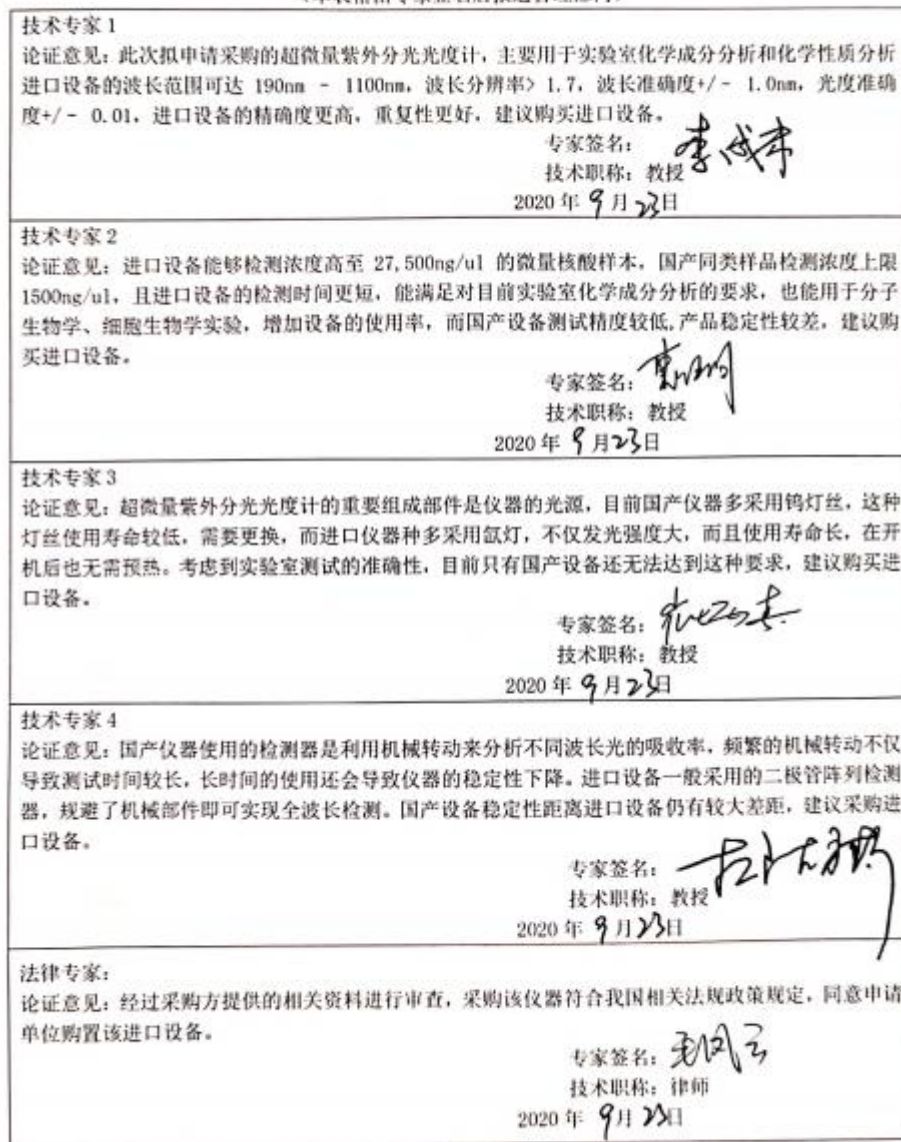 技术专家 1
论证意见：此次拟申请采购的超微量紫外分光光度计，主要用于实验室化学成分分析和化学性质分析
进口设备的波长范围可达 190nm - 1100nm，波长分辨率> 1.7，波长准确度+/- 1.0nm，光度准确
度+/- 0.01，进口设备的精确度更高，重复性更好，建议购买进口设备。
专家签名：
技术职称：教授
2020 年 9 月 23 日
技术专家 2
论证意见：进口设备能够检测浓度高至 27,500ng/ul 的微量核酸样本，国产同类样品检测浓度上限
1500ng/ul，且进口设备的检测时间更短，能满足对目前实验室化学成分分析的要求，也能用于分子
生物学、细胞生物学实验，增加设备的使用率，而国产设备测试精度较低,产品稳定性较差，建议购
买进口设备。
专家签名：
技术职称：教授
2020 年 9 月 23 日
技术专家 3
论证意见：超微量紫外分光光度计的重要组成部件是仪器的光源，目前国产仪器多采用钨灯丝，这种
灯丝使用寿命较低，需要更换，而进口仪器种多采用氙灯，不仅发光强度大，而且使用寿命长，在开
机后也无需预热。考虑到实验室测试的准确性，目前只有国产设备还无法达到这种要求，建议购买进
口设备。
专家签名：
技术职称：教授
2020 年 9 月 23 日
技术专家 4
论证意见：国产仪器使用的检测器是利用机械转动来分析不同波长光的吸收率，频繁的机械转动不仅
导致测试时间较长，长时间的使用还会导致仪器的稳定性下降。进口设备一般采用的二极管阵列检测
器，规避了机械部件即可实现全波长检测。国产设备稳定性距离进口设备仍有较大差距，建议采购进
口设备。
专家签名：
技术职称：教授
2020 年 9 月 23 日
法律专家：
论证意见：经过采购方提供的相关资料进行审查，采购该仪器符合我国相关法规政策规定，同意申请
单位购置该进口设备。
专家签名：毛凤云
技术职称：律师
2020 年 9 月 23 日